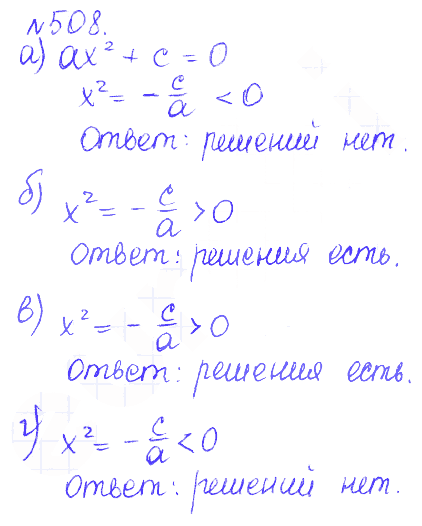 №508.
а) ax² + c = 0
x² = - c/a < 0
Ответ: решений нет.
б) x² = - c/a > 0
Ответ: решения есть.
в) x² = - c/a > 0
Ответ: решения есть.
г) x² = - c/a < 0
Ответ: решений нет.